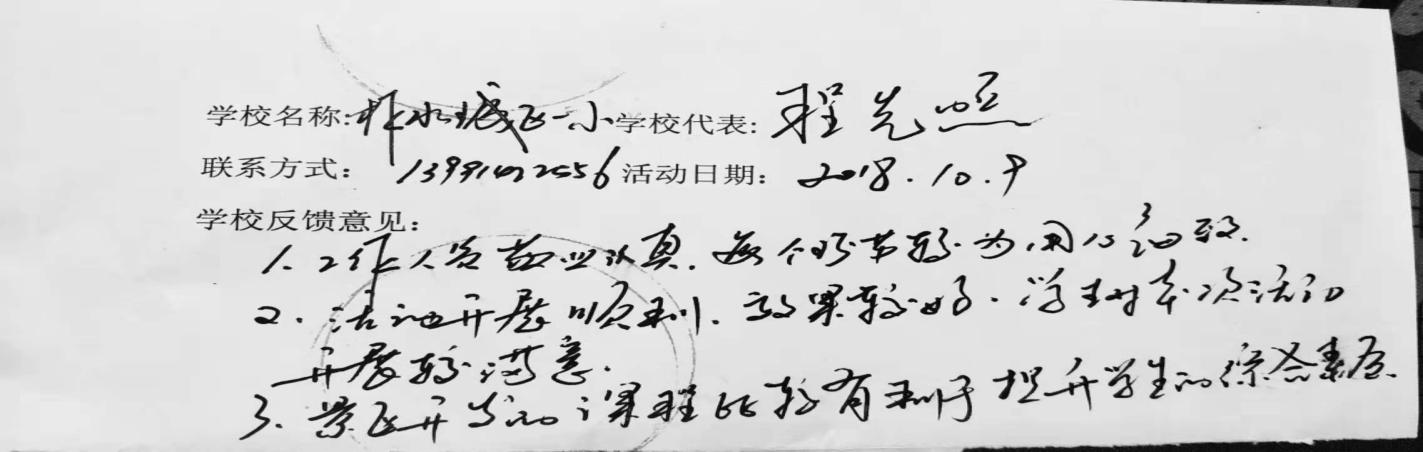 学校名称:柞水城区一小 学校代表:程先照
联系方式: 13991422556 活动日期: 2018.10.9
学校反馈意见:
1.工作人员敬业认真.每个环节较为用心细致.
2.活动开展顺利.效果较好.学生对本次活动
开展较满意.
3.景区开发的课程比较有利于提升学生的综合素质.